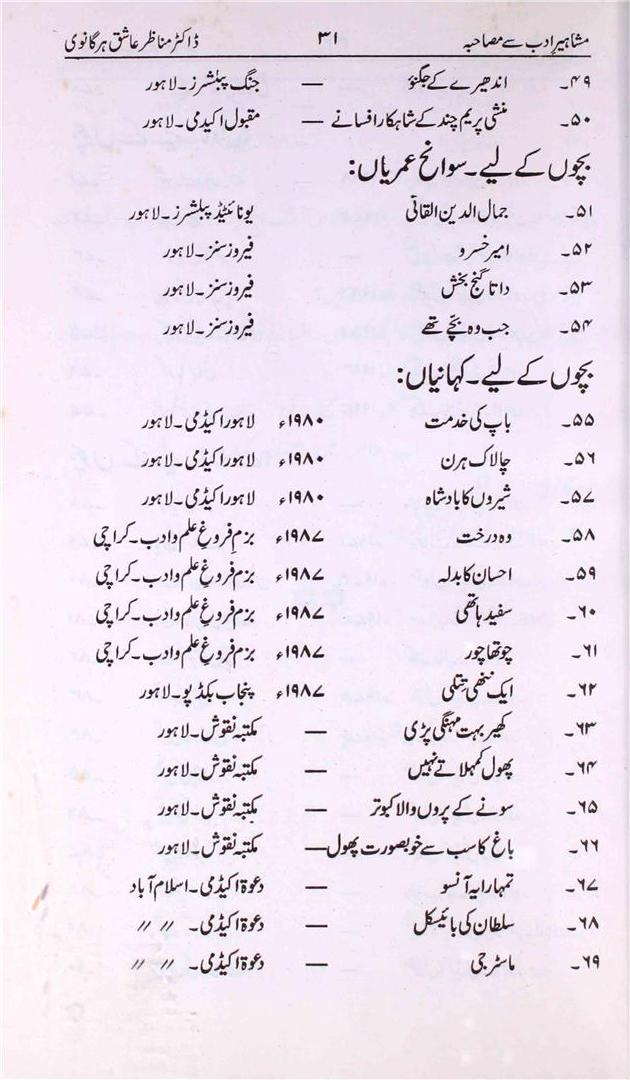 مشاہیرِ ادب سے مصاحبہ ۳۱ ڈاکٹر مناظر عاشق ہرگانوی
۴۹۔ اندھیرے کے جگنو — جنگ پبلشرز۔ لاہور
۵۰۔ منشی پریم چند کے شاہکار افسانے — مقبول اکیڈمی۔ لاہور
بچوں کے لیے۔ سوانح عمریاں:
۵۱۔ جمال الدین القانی یونائیٹڈ پبلشرز۔ لاہور
۵۲۔ امیر خسرو فیروز سنز۔ لاہور
۵۳۔ داتا گنج بخش فیروز سنز۔ لاہور
۵۴۔ جب وہ بچے تھے فیروز سنز۔ لاہور
بچوں کے لیے۔ کہانیاں:
۵۵۔ باپ کی خدمت ۱۹۸۰ء لاہور اکیڈمی۔ لاہور
۵۶۔ چالاک ہرن ۱۹۸۰ء لاہور اکیڈمی۔ لاہور
۵۷۔ شیروں کا بادشاہ ۱۹۸۰ء لاہور اکیڈمی۔ لاہور
۵۸۔ وہ درخت ۱۹۸۷ء بزمِ فروغِ علم و ادب۔ کراچی
۵۹۔ احسان کا بدلہ ۱۹۸۷ء بزمِ فروغِ علم و ادب۔ کراچی
۶۰۔ سفید ہاتھی ۱۹۸۷ء بزمِ فروغِ علم و ادب۔ کراچی
۶۱۔ چوتھا چور ۱۹۸۷ء بزمِ فروغِ علم و ادب۔ کراچی
۶۲۔ ایک ننھی تتلی ۱۹۸۷ء پنجاب بکڈپو۔ لاہور
۶۳۔ کھیر بہت مہنگی پڑی — مکتبہ نقوش۔ لاہور
۶۴۔ پھول کمہلاتے نہیں — مکتبہ نقوش۔ لاہور
۶۵۔ سونے کے پروں والا کبوتر — مکتبہ نقوش۔ لاہور
۶۶۔ باغ کا سب سے خوبصورت پھول — مکتبہ نقوش۔ لاہور
۶۷۔ تمہارا یہ آنسو — دعوۃ اکیڈمی۔ اسلام آباد
۶۸۔ سلطان کی بائیسکل — دعوۃ اکیڈمی۔ // //
۶۹۔ ماسٹر جی — دعوۃ اکیڈمی۔ // //